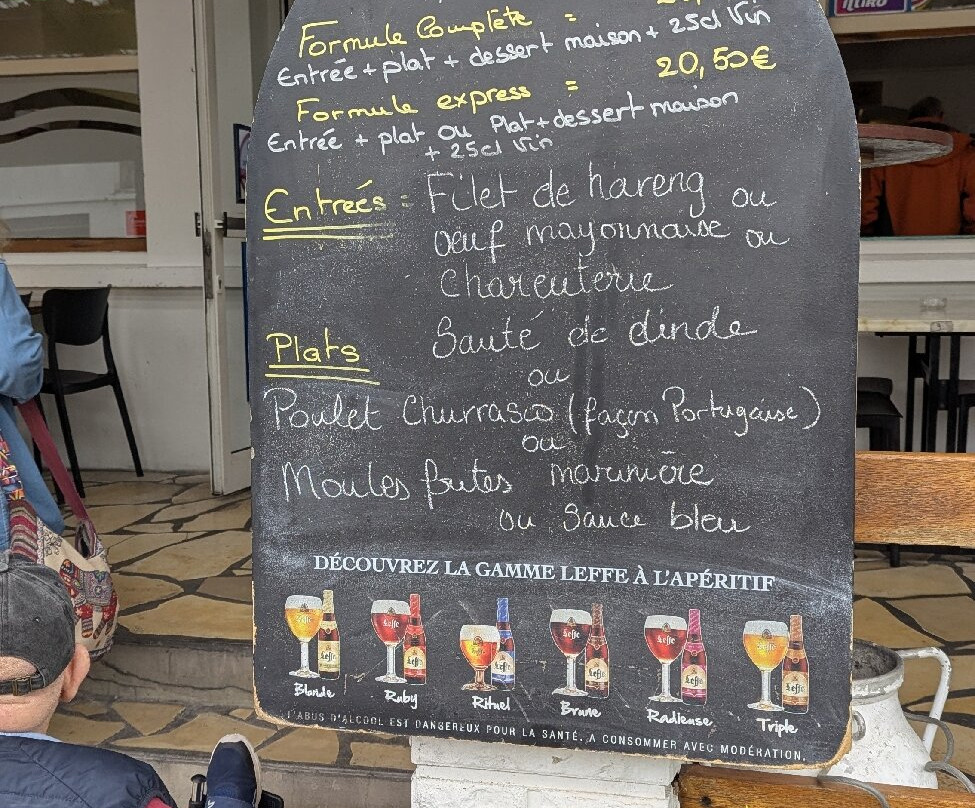 Formule Complète =
Entrée + plat + dessert maison + 25cl Vin
Formule express = 20,50€
Entrée + plat ou Plat + dessert maison
+ 25cl Vin
Entreés : Filet de hareng ou
oeuf mayonnaise ou
Charcuterie
Plats Sauté de dinde
ou
Poulet Churrasco (façon Portugaise)
ou
Moules frites marinière
ou Sauce bleu
DÉCOUVREZ LA GAMME LEFFE À L'APÉRITIF
Leffe Leffe Leffe Leffe Leffe Leffe
Blonde Ruby Rituel Brune Radieuse Triple
L'ABUS D'ALCOOL EST DANGEREUX POUR LA SANTÉ, A CONSOMMER AVEC MODÉRATION.